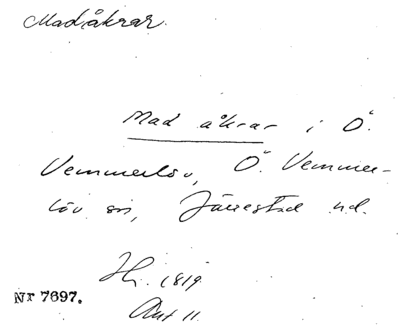 Madåkrar.
Mad åkrar i Ö.
Vemmerlöv, Ö. Vemmer-
löv sn, Järrestad hd.
Hi. 1819
Nr 7697.
Akt 11.